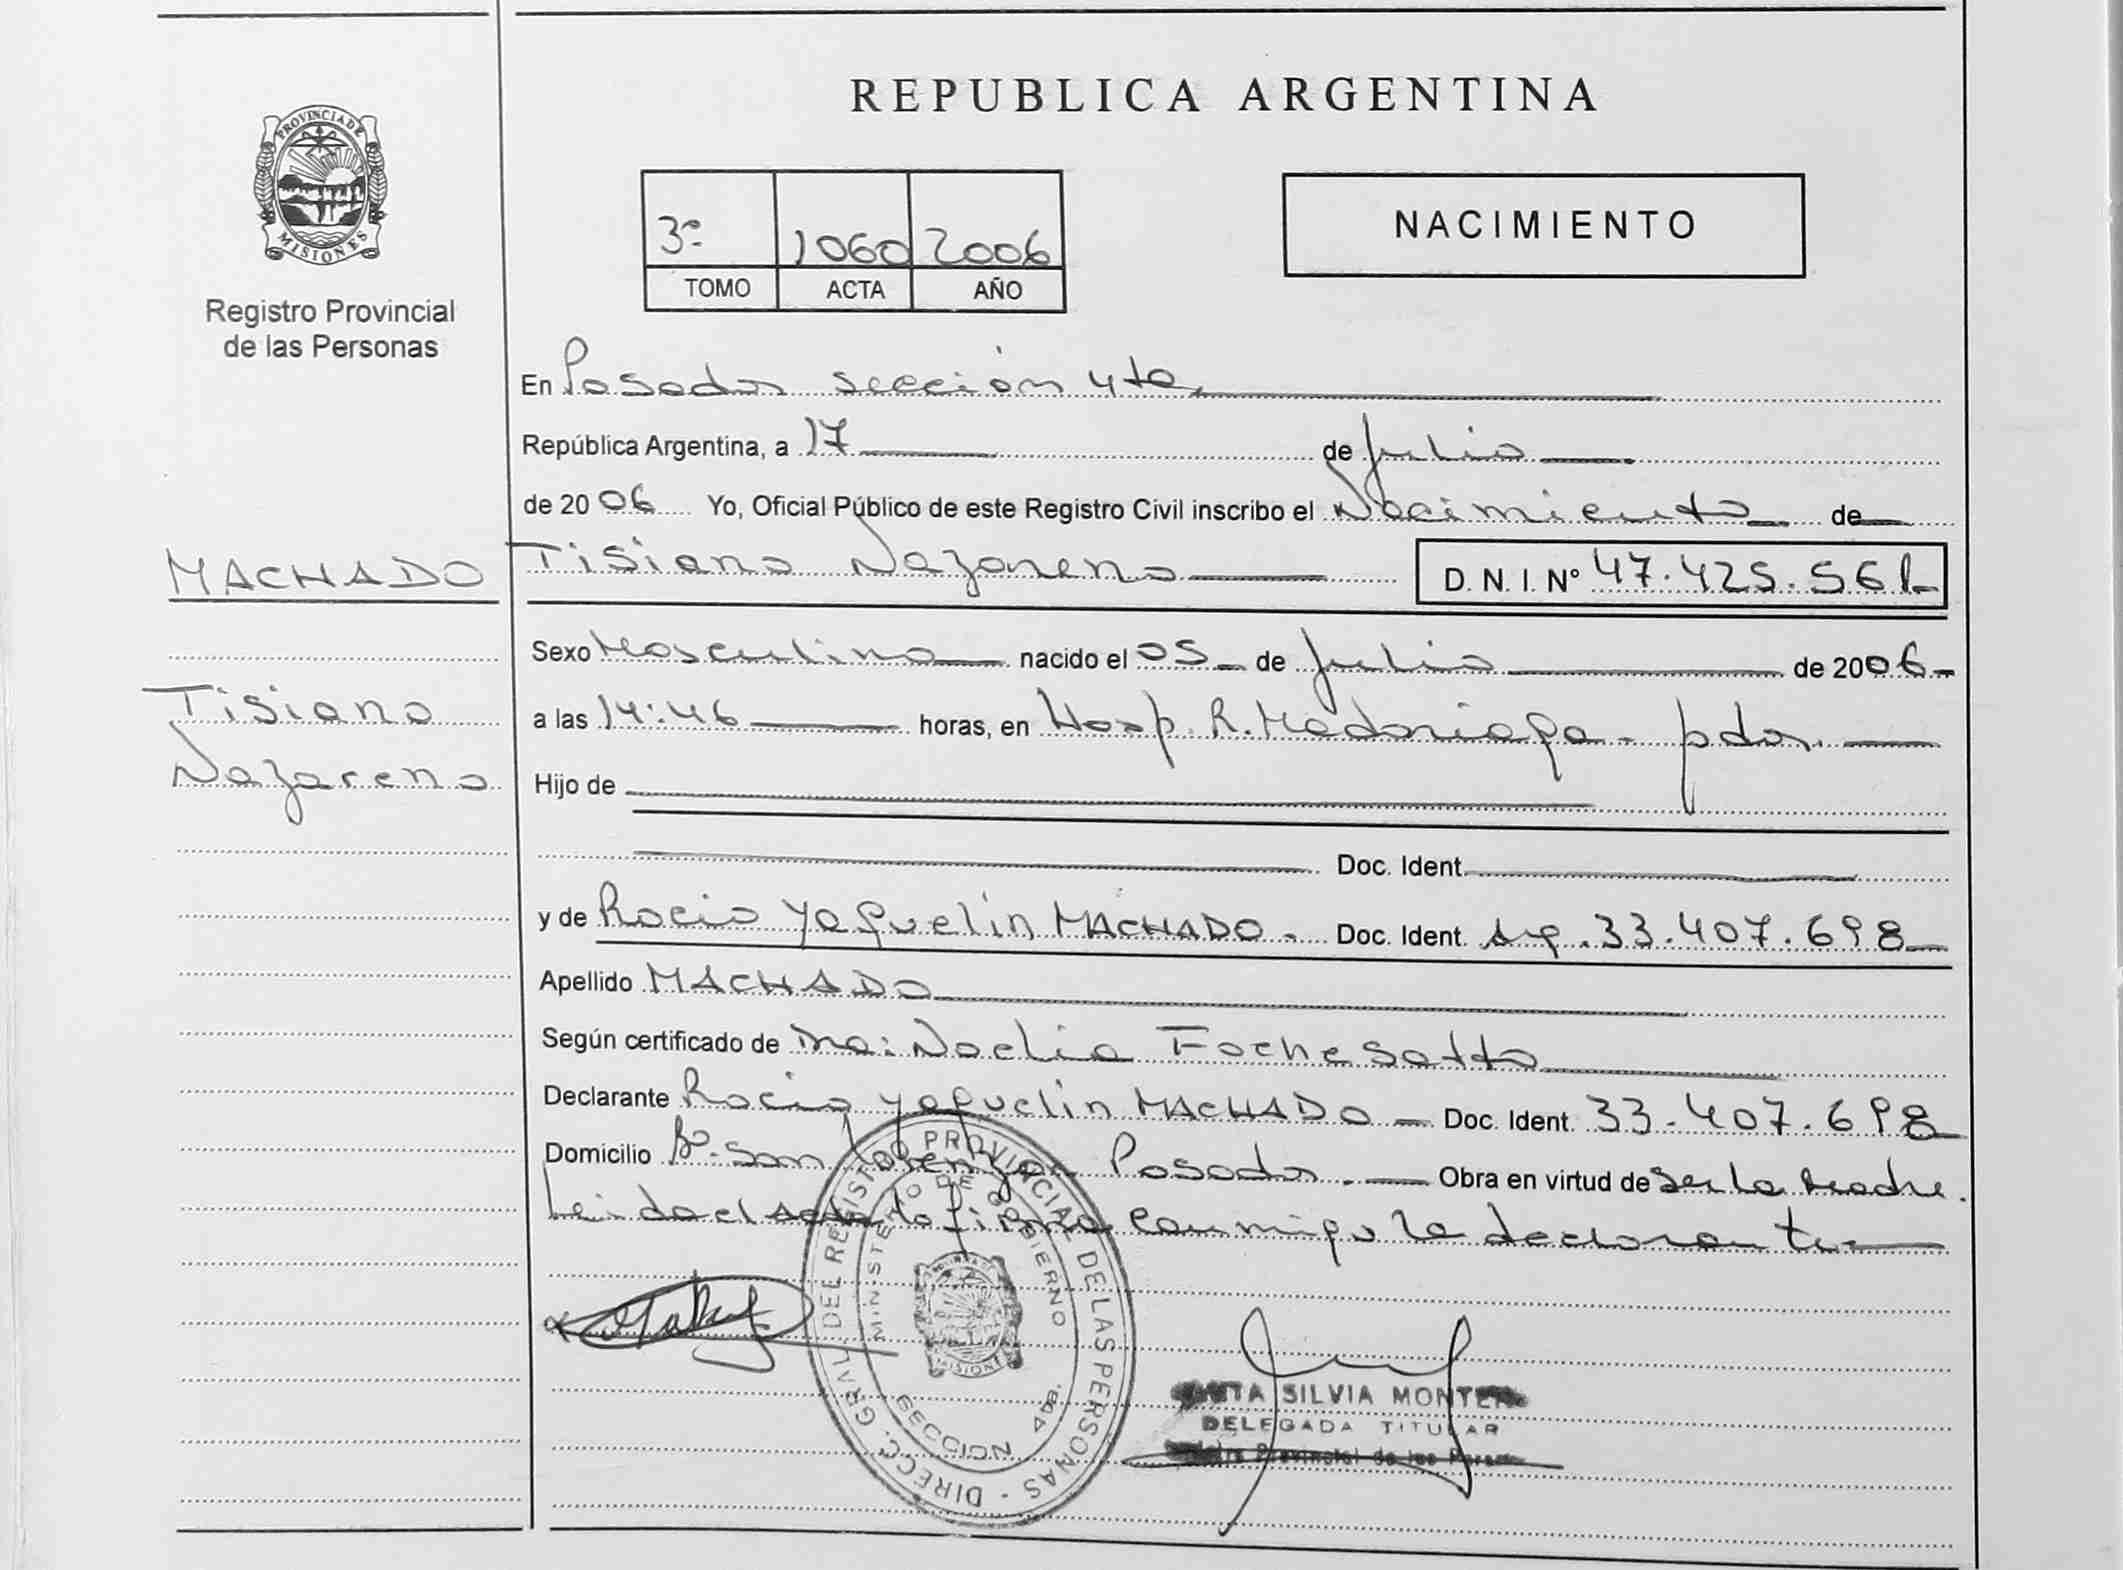 REPUBLICA ARGENTINA
PROVINCIA DE
MISIONES
Registro Provincial
de las Personas
3º 1060 2006
TOMO ACTA AÑO
NACIMIENTO
En Posadas sección 4ta
República Argentina, a 17 de Julio
de 2006 Yo, Oficial Público de este Registro Civil inscribo el Nacimiento de
MACHADO
Tisiano Nazareno D. N. I. Nº 47.425.561
Tisiano
Nazareno
Sexo Masculino nacido el 05 de Julio de 2006
a las 14:46 horas, en Hosp. R. Madariaga - pdas.
Hijo de
Doc. Ident.
y de Rocio Yaquelin MACHADO. Doc. Ident. Arg. 33.407.698
Apellido MACHADO
Según certificado de Dra: Noelia Fochesatto
Declarante Rocio Yaquelin MACHADO Doc. Ident. 33.407.698
Domicilio Bº. San Lorenzo Posadas. Obra en virtud de ser la Madre.
Leida el acta la firma conmigo la declarante
DIRECC. GRAL. DEL REGISTRO PROVINCIAL DE LAS PERSONAS
MINISTERIO DE GOBIERNO
MISIONES
SECCION 4ta.
SILVIA
DELEGADA TITULAR
Provincial de las